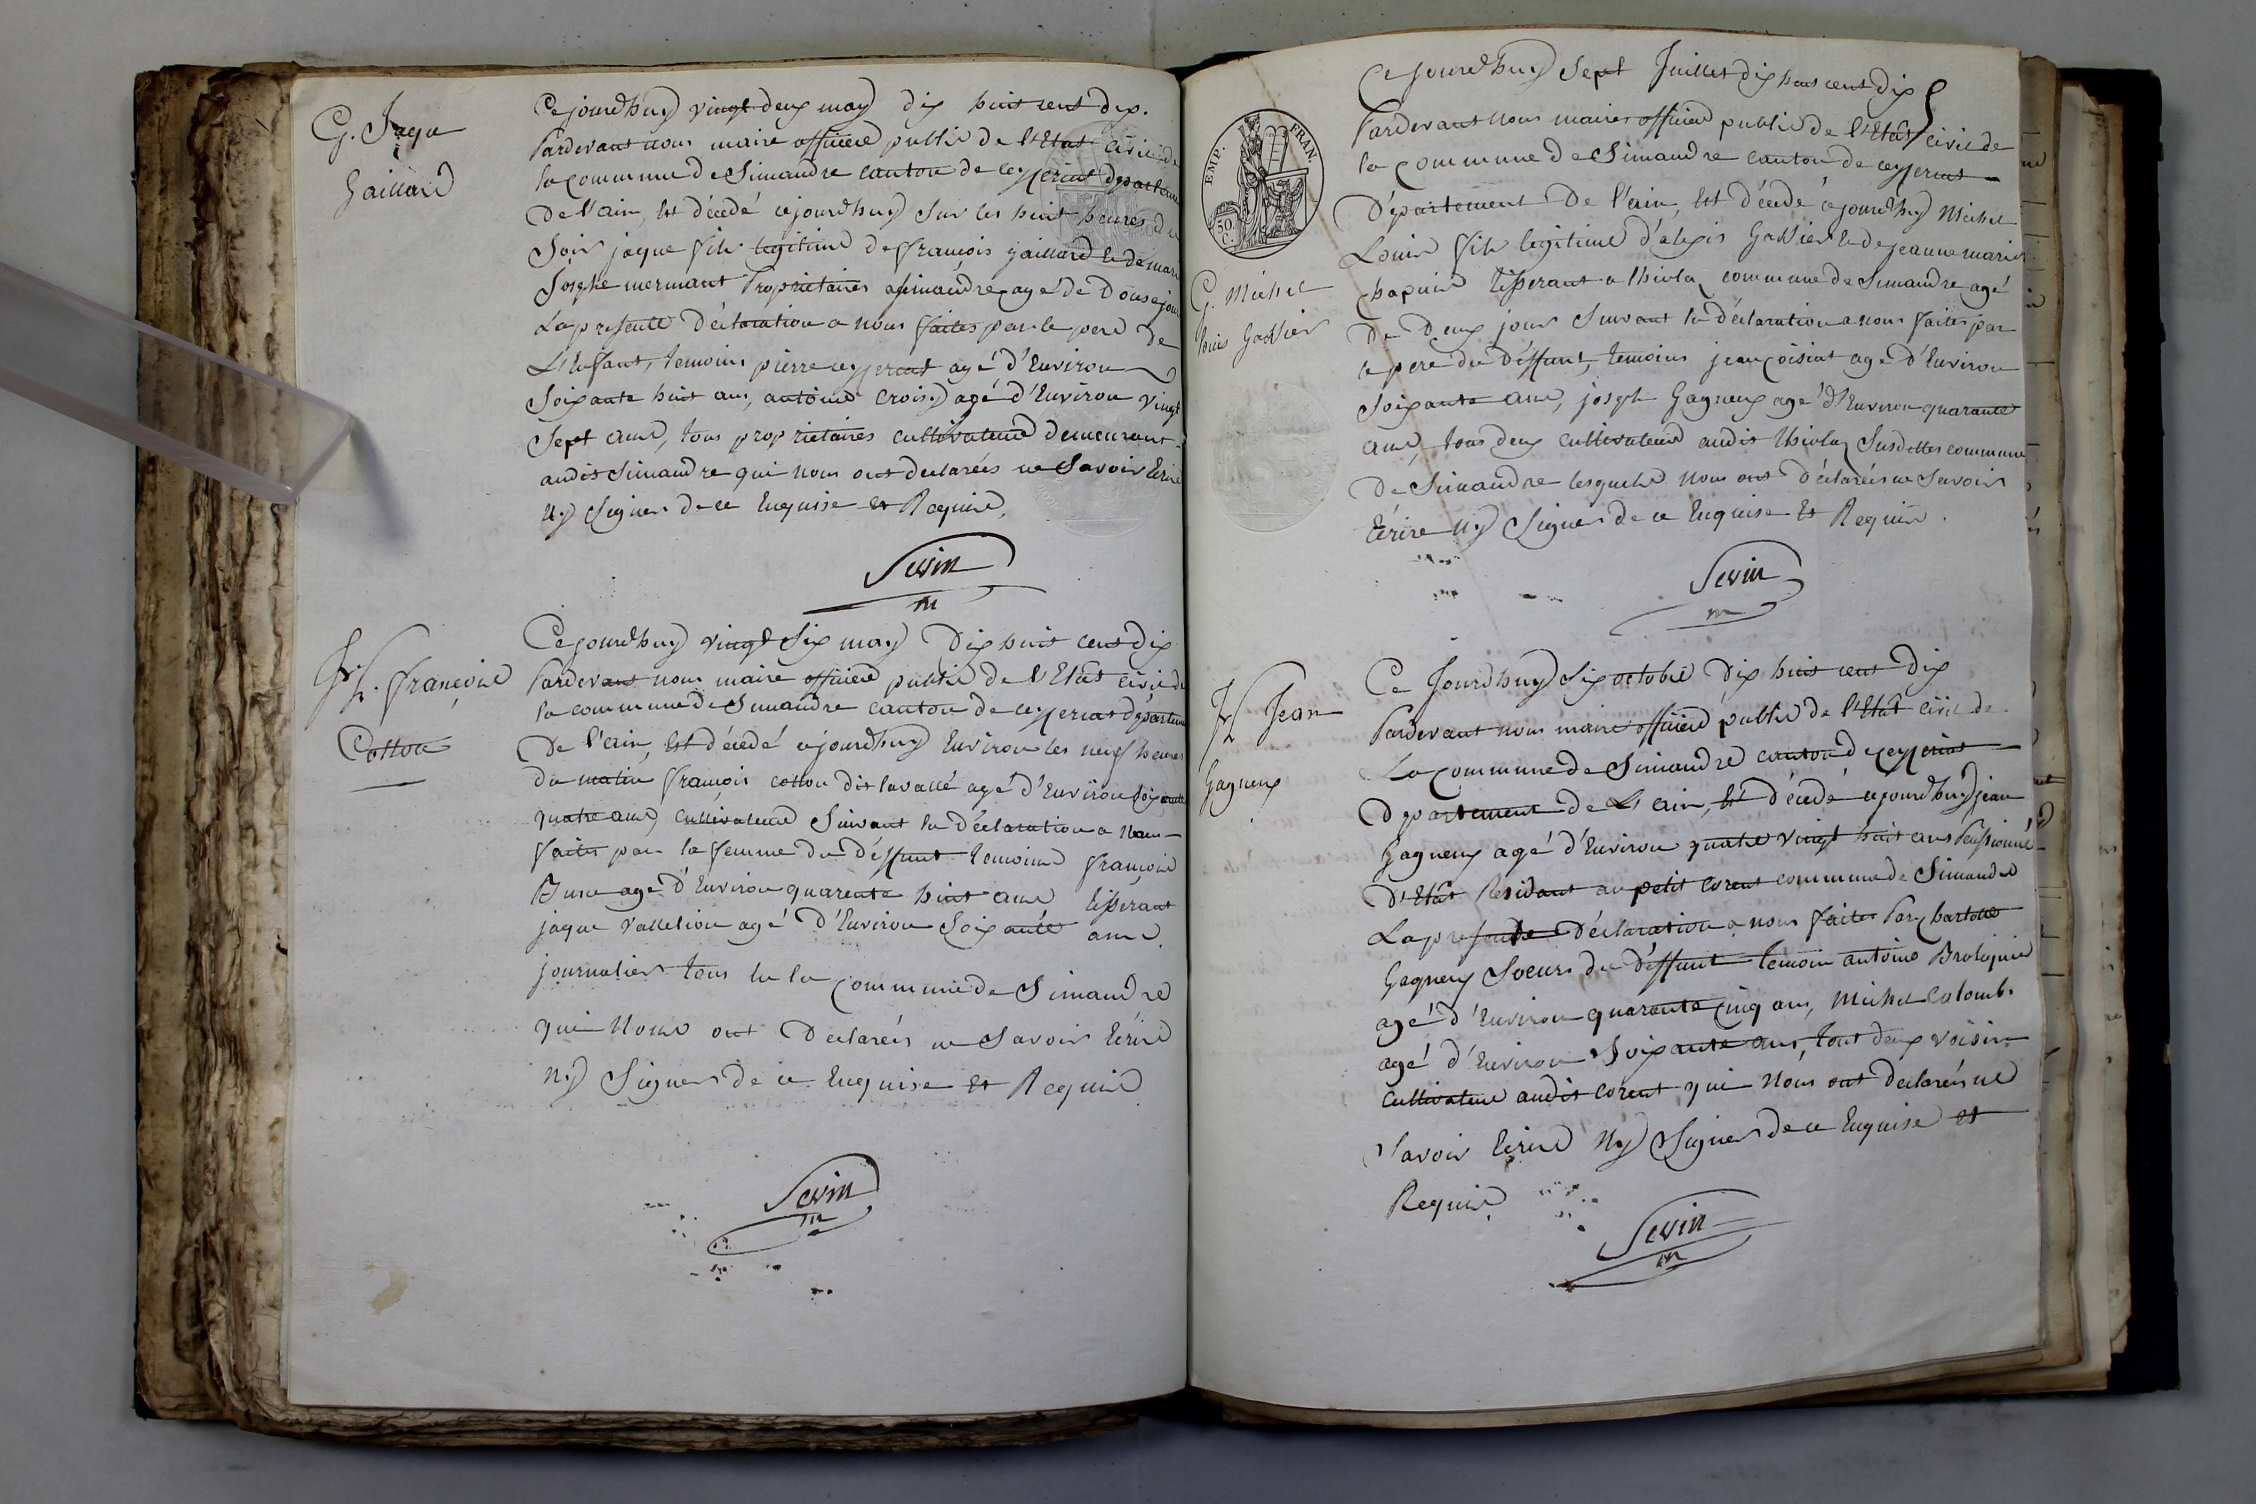 G. Jaque
Gaillard
Cejourdhuy vingt deux may dix huit cent dix.
Pardevant nous maire officied public de l'Etat civil de
la commune de Simandre canton de ceyzeriat departeme
De l'ain, Est décedé cejourdhuy sur les huit heures du
Soir jaque fils legitime de françois gaillard et de marie
Josephe mermant Proprietaires asimandre, agé de Douse jour
La presente déclaration a nous faites par le pere de
L'Enfant, temoins pierre ceyzeriat agé d'Environ
Soixante huit ans, antoine Croisy agé d'Environ vingt
Sept ans, tous proprietaires cultivateurs demeurant
audit Simandre qui nous ont declarées ne Savoir Ecrire
Ny Signer de ce Enquise et Requise,
Sevin
m
fh. françoise
Cotton
Cejourdhuy vingt Six may Dix huit cent Dix
Pardevant nous maire officied public de l'Etat civil de
la commune de Simandre canton de ceyzeriat departeme
De l'ain, Est décedé cejourdhuy Environ les neuf heures
du matin françois cotton dit lavallé agé d'Environ Soixante
quatre ans, cultivateur Suivant la Déclaration a Nous
faites par la femme du Déffunt temoins françois
agé d'Environ quarente huit ans tisserant
jaque Valletion agé d'Environ Soixante ans
journalier tous la commune de Simandre
qui Nous ont Declarées ne Savoir Ecrire
Ny Signer de ce Enquise et Requise
Sevin
m
5
EMP. FRAN.
50.
C.
G. Michel
Louis Gassier
Ce jourdhuy Sept Juillet dix huit cent dix
Pardevant nous maires officied public de l'Etat civil de
la commune de Simandre canton de ceyzeriat
Département De l'ain, Est décedé cejourdhuy Michel
Louis fils legitime d'alexis Gassier et de jeanne marie
Chapuis tisserant a thiolaz commune de Simandre agé
De Deux jours Suivant la déclaration a nous faites par
le pere du déffunt, temoins jean çoisiat agé d'Environ
Soixante ans, joseph Gagneux agé d'Environ quarante
ans, tous deux cultivateurs audit thiolaz Susdittes commune
De Simandre lesquels nous ont Déclarées ne Savoir
Ecrire Ny Signer de ce Enquise Et Requise.
Sevin
m
fh Jean
Gagneux
Ce Jourdhuy Six octobre Dix huit cent Dix
Pardevant nous maire officied public de l'Etat civil de
La commune de Simandre canton de ceyzeriat
Departement de L'ain, Est décedé cejourdhuy jean
Gagneux agé d'Environ quatre vingt huit ans Penssionné
D'Etat Residant au petit corent commune de Simandre
La presente Déclaration a nous faites Par
Gagneux Soeurs du déffunt temoin antoine Brotiquie
agé d'Environ quarante Cinq ans, Michel Colomb.
agé d'Environ Soixante ans, tout deux voisin
Cultivateur audit corent qui Nous ont declarées ne
Savoir Ecrire Ny Signer de ce Enquise et
Requise
Sevin
m